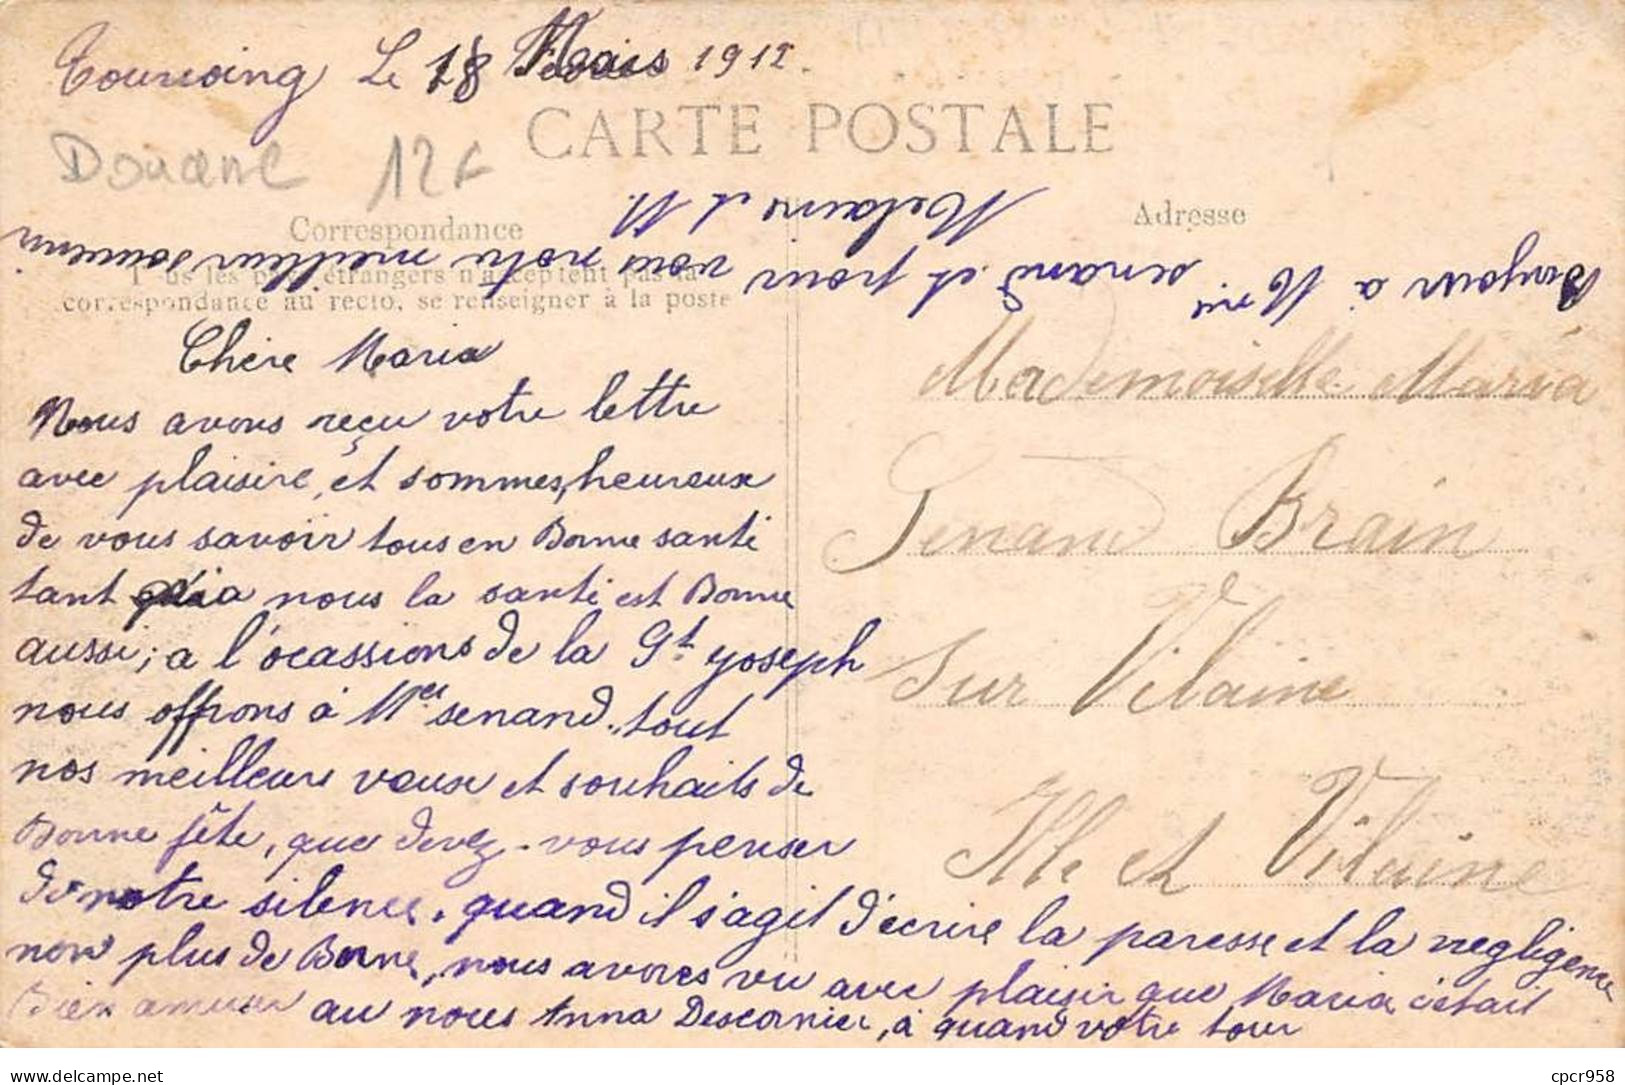 Tourcoing Le 18 Mars 1912.
CARTE POSTALE
Douane 12F
Correspondance
Tous les pays étrangers n'acceptent pas la
correspondance au recto, se renseigner à la poste
Adresse
Bonjour à Mme senand et pour vous notre meilleur souvenir
Chère Maria
Nous avons reçu votre lettre
avec plaisire, et sommes, heureux
de vous savoir tous en Bonne santé
tant qu'a nous la santé est Bonne
aussi; a l'ocassions de la St yoseph
nous offrons à Mr senand. tout
nos meilleurs vœux et souhaits de
Bonne fête, que devez-vous penser
de notre silence. quand il s'agit d'écrire la paresse et la negligence
non plus de Borne, nous avons vu avec plaisir que Maria c'était
Bien amuser au nous Anna Descornier, à quand votre tour
Mademoiselle Maria
Senand Brain
sur Vilaine
Ille et Vilaine
cpcr958